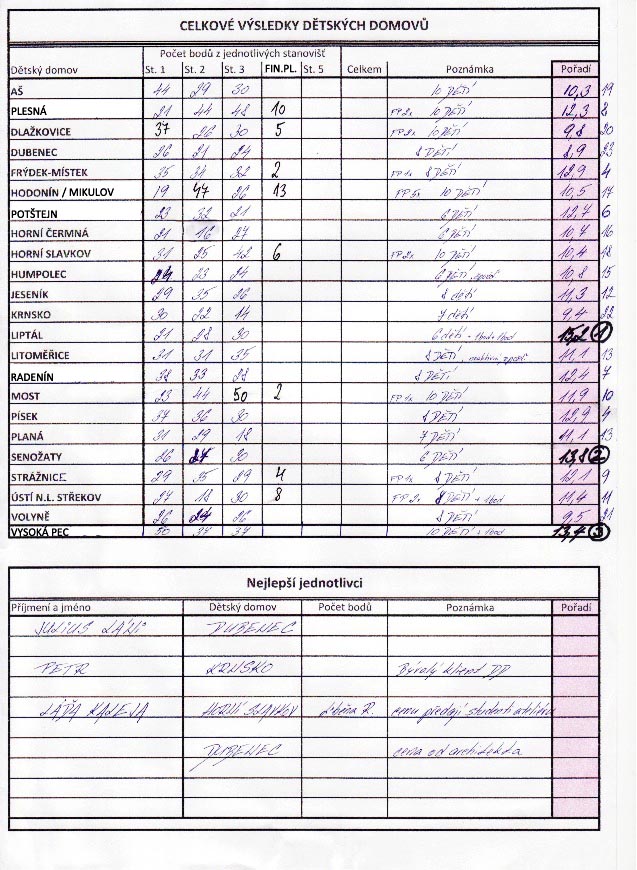 CELKOVÉ VÝSLEDKY DĚTSKÝCH DOMOVŮ
Počet bodů z jednotlivých stanovišť
Dětský domov St. 1 St. 2 St. 3 FIN.PL. St. 5 Celkem Poznámka Pořadí
AŠ 44 29 30 10 DĚTÍ 10,3 19
PLESNÁ 21 44 48 10 FP 2x 10 DĚTÍ 12,3 8
DLAŽKOVICE 37 26 30 5 FP 2x 10 DĚTÍ 9,8 20
DUBENEC 26 21 24 8 DĚTÍ 8,9 23
FRÝDEK-MÍSTEK 35 34 32 2 FP 1x 8 DĚTÍ 12,9 4
HODONÍN / MIKULOV 19 47 26 13 FP 5x 10 DĚTÍ 10,5 17
POTŠTEJN 23 32 21 6 DĚTÍ 12,7 6
HORNÍ ČERMNÁ 21 16 27 6 DĚTÍ 10,7 16
HORNÍ SLAVKOV 31 25 42 6 FP 2x 10 DĚTÍ 10,4 18
HUMPOLEC 24 23 24 6 DĚTÍ 10,8 15
JESENÍK 29 35 26 8 dětí 11,3 12
KRNSKO 30 22 14 7 dětí 9,4 22
LIPTÁL 21 28 30 6 dětí + 1bod + 1bod 15,2 1
LITOMĚŘICE 31 31 35 8 DĚTÍ, 11,1 13
RADENÍN 38 33 28 8 DĚTÍ 12,4 7
MOST 23 44 50 2 FP 1x 10 DĚTÍ 11,9 10
PÍSEK 37 36 30 8 DĚTÍ 12,9 4
PLANÁ 31 29 18 7 DĚTÍ 11,1 13
SENOŽATY 26 27 30 6 DĚTÍ 13,8 2
STRÁŽNICE 29 35 29 4 FP 1x 8 DĚTÍ 12,1 9
ÚSTÍ N.L. STŘEKOV 27 18 30 8 FP 2x 8 DĚTÍ + 1bod 11,4 11
VOLYNĚ 26 24 26 8 DĚTÍ 9,5 21
VYSOKÁ PEC 50 37 37 10 DĚTÍ + 1bod 13,4 3
Nejlepší jednotlivci
Příjmení a jméno Dětský domov Počet bodů Poznámka Pořadí
JULIUS DUBENEC
PETR KRNSKO Bývalý klient DD
LÁĎA KALEJA HORNÍ SLAVKOV R. cenu předají studenti ateliéru
DUBENEC cena od architekta